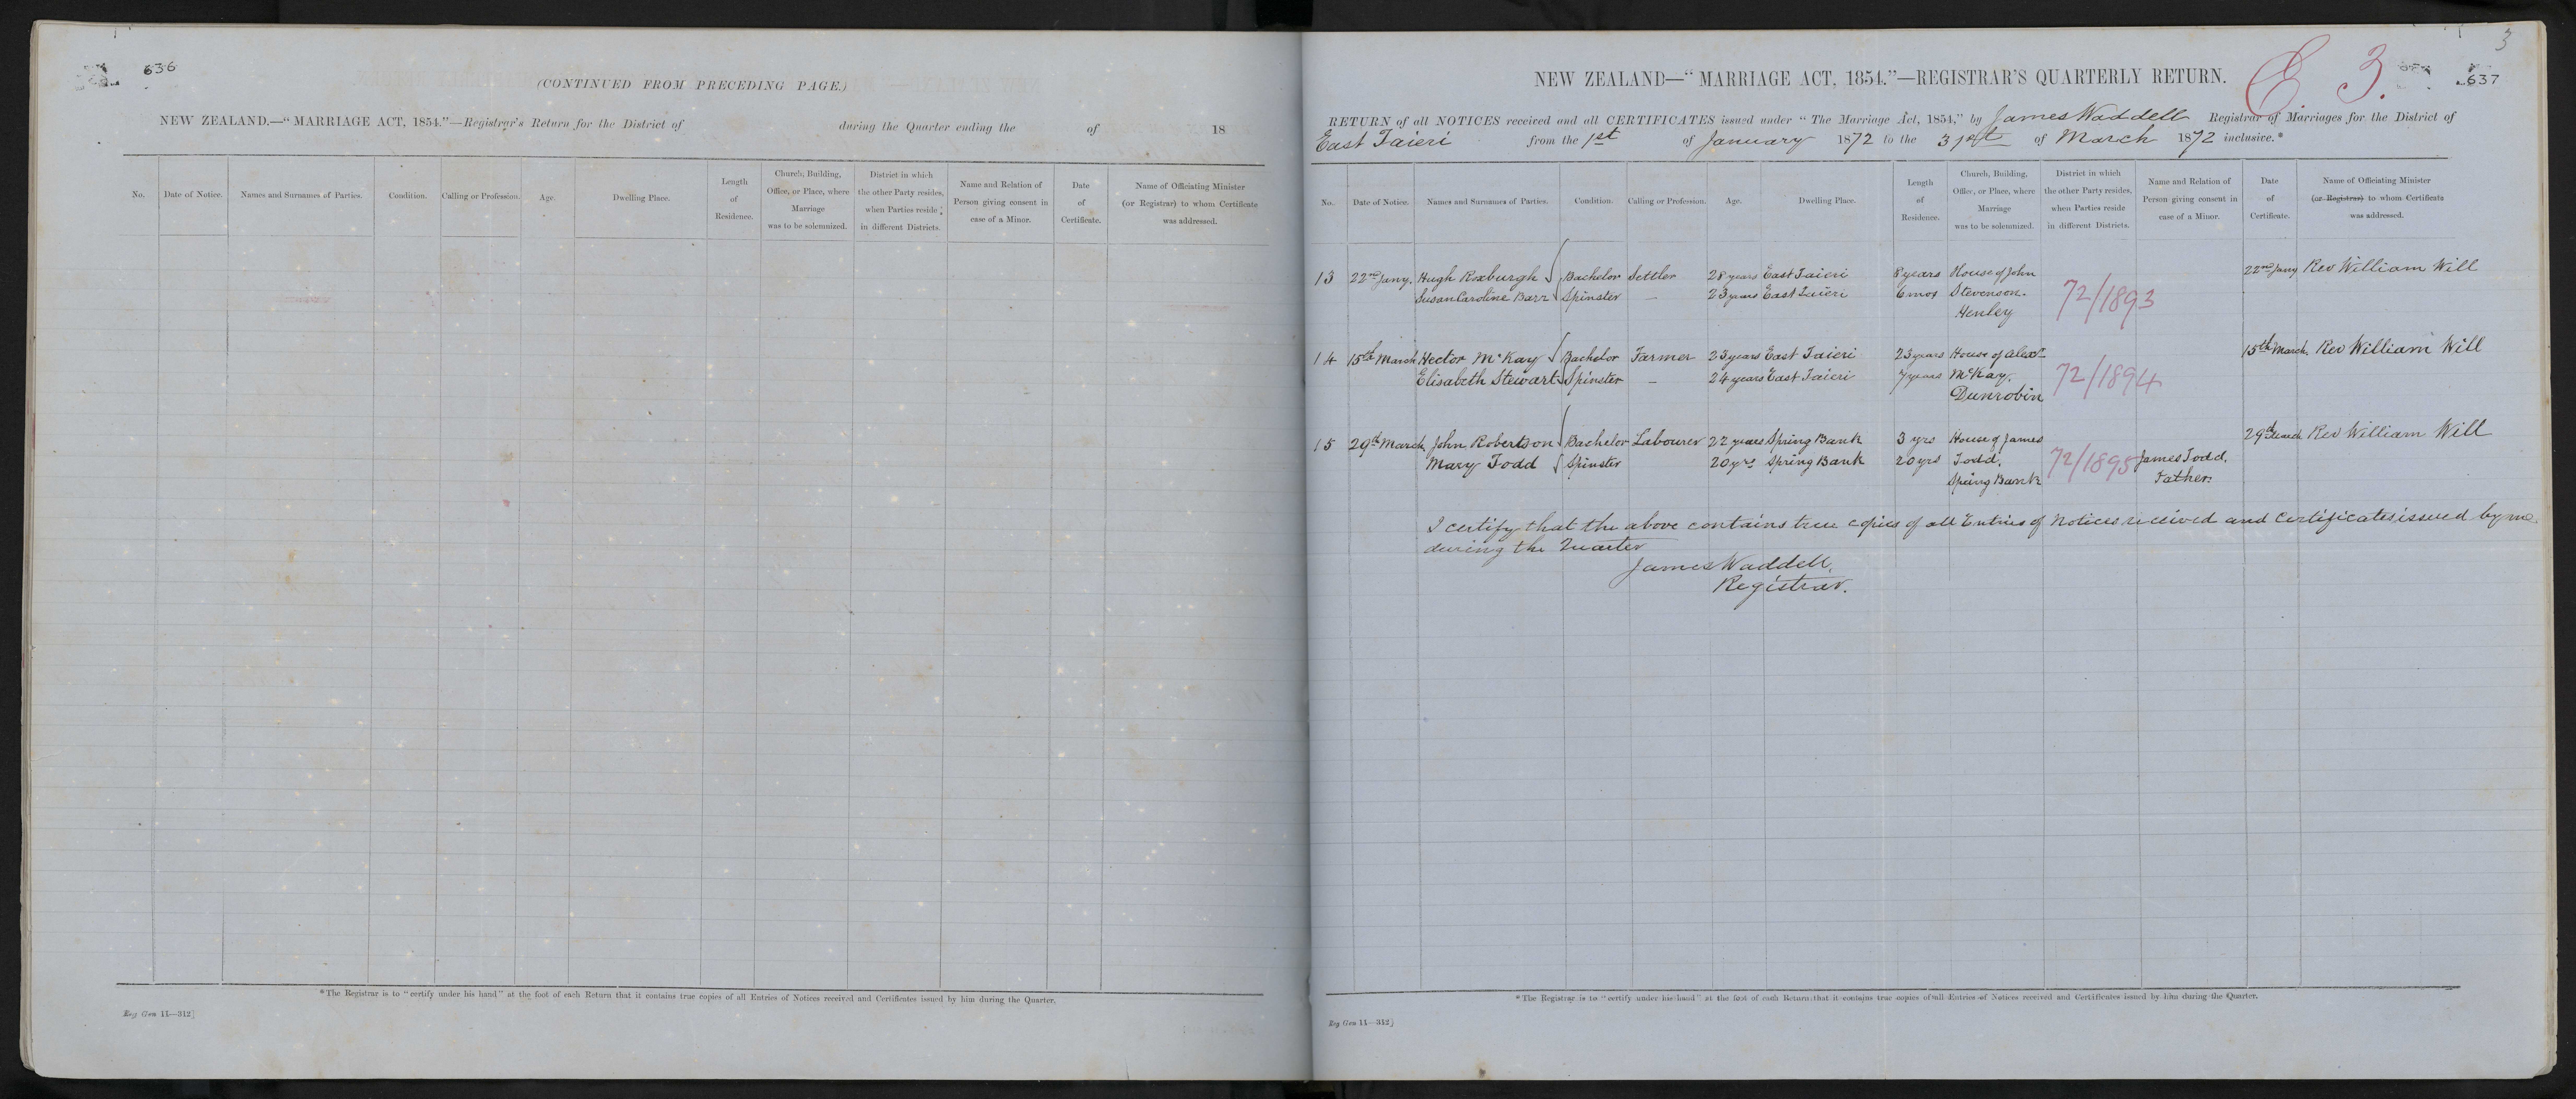 636
(CONTINUED FROM PRECEDING PAGE.)
NEW ZEALAND.—"MARRIAGE ACT, 1854."—Registrar's Return for the District of during the Quarter ending the of 18
No. Date of Notice. Names and Surnames of Parties. Condition. Calling or Profession. Age. Dwelling Place. Length of Residence. Church, Building, Office, or Place, where Marriage was to be solemnized. District in which the other Party resides, when Parties reside in different Districts. Name and Relation of Person giving consent in case of a Minor. Date of Certificate. Name of Officiating Minister (or Registrar) to whom Certificate was addressed.
*The Registrar is to "certify under his hand" at the foot of each Return that it contains true copies of all Entries of Notices received and Certificates issued by him during the Quarter.
Reg Gen 11—312]
3
NEW ZEALAND—"MARRIAGE ACT, 1854."—REGISTRAR'S QUARTERLY RETURN.
E 3.
637
RETURN of all NOTICES received and all CERTIFICATES issued under "The Marriage Act, 1854," by James Waddell Registrar of Marriages for the District of
East Taieri from the 1st of January 1872 to the 31st of March 1872 inclusive.*
No. Date of Notice. Names and Surnames of Parties. Condition. Calling or Profession. Age. Dwelling Place. Length of Residence. Church, Building, Office, or Place, where Marriage was to be solemnized. District in which the other Party resides, when Parties reside in different Districts. Name and Relation of Person giving consent in case of a Minor. Date of Certificate. Name of Officiating Minister (or Registrar) to whom Certificate was addressed.
13 22nd Jany. Hugh Roxburgh Bachelor Settler 28 years East Taieri 8 years House of John 22nd Jany Rev William Will
Susan Caroline Barr Spinster — 23 years East Taieri 6 mos Stevenson. 72/1893
Henley
14 15th March Hector McKay Bachelor Farmer 23 years East Taieri 23 years House of Alexr 15th March. Rev William Will
Elisabeth Stewart Spinster — 24 years East Taieri 7 years McKay. 72/1894
Dunrobin
15 29th March John Robertson Bachelor Labourer 22 years Spring Bank 3 yrs House of James 29th March Rev William Will
Mary Todd Spinster 20 yrs Spring Bank 20 yrs Todd. 72/1895 James Todd.
Spring Bank Father.
I certify that the above contains true copies of all Entries of Notices received and Certificates issued by me
during the Quarter
James Waddell,
Registrar.
*The Registrar is to "certify under his hand" at the foot of each Return that it contains true copies of all Entries of Notices received and Certificates issued by him during the Quarter.
Reg Gen 11—312]